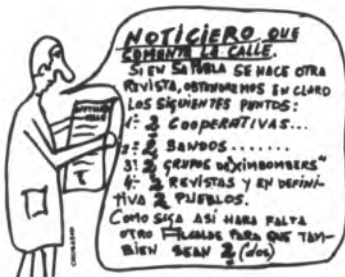 NOTICIERO QUE
COMENTA LA CALLE.
SI EN SA POBLA SE HACE OTRA
REVISTA, OBTENDREMOS EN CLARO
LOS SIGUIENTES PUNTOS:
1º 2 COOPERATIVAS...
2º 2 BANDOS.......
3º 2 GRUPOS DE "XIMBOMBERS"
4º 2 REVISTAS Y EN DEFINI-
TIVA 2 PUEBLOS.
COMO SIGA ASÍ HARA FALTA
OTRO ALCALDE PARA QUE TAM-
BIEN SEAN 2 (dos)